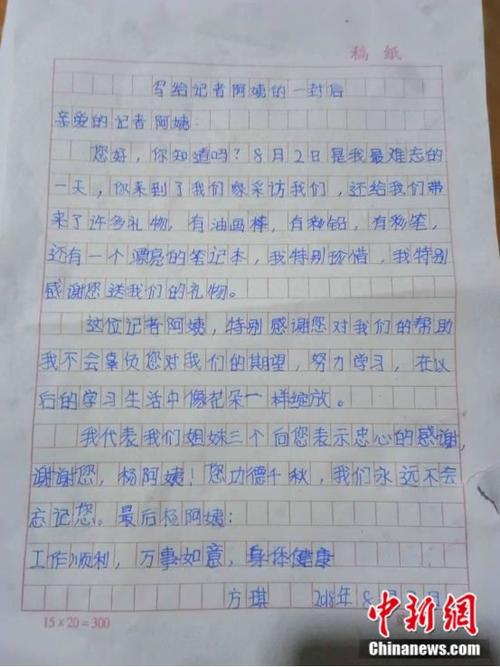 稿纸
写给记者阿姨的一封后
亲爱的记者阿姨:
您好,你知道吗?8月2日是我最难忘的
一天,你来到了我们家采访我们,还给我们带
来了许多礼物,有油画棒,有彩铅,有彩笔,
还有一个漂亮的笔记本,我特别珍惜,我特别
感谢您送我们的礼物。
这位记者阿姨,特别感谢您对我们的帮助
我不会辜负您对我们的期望,努力学习,在以
后的学习生活中像花朵一样绽放。
我代表我们姐妹三个向您表示忠心的感谢,
谢谢您,杨阿姨!您功德千秋,我们永远不会
忘记您。最后杨阿姨:
工作顺利,万事如意,身体健康
方琪 2018年8月
15×20=300
中新网
Chinanews.com